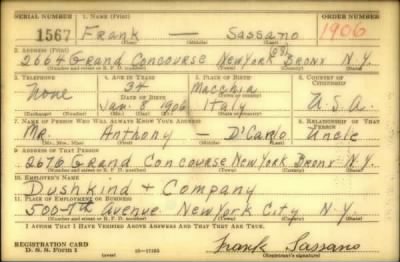 SERIAL NUMBER 1. NAME (Print) ORDER NUMBER
1567 Frank — Sassano 1906
(First) (Middle) (Last)
2. ADDRESS (Print)
2664 Grand Concourse New York Bronx N.Y.
(Number and street or R. F. D. number) (Town) (County) (State)
3. TELEPHONE 4. AGE IN YEARS 5. PLACE OF BIRTH 6. COUNTRY OF CITIZENSHIP
34 Macchia
None DATE OF BIRTH
Jan. 8 1906 Italy U.S.A.
7. NAME OF PERSON WHO WILL ALWAYS KNOW YOUR ADDRESS 8. RELATIONSHIP OF THAT PERSON
Mr. Anthony — D'Carlo Uncle
(Mr., Mrs., Miss) (First) (Middle) (Last)
9. ADDRESS OF THAT PERSON
2676 Grand Concourse New York Bronx N.Y.
(Number and street or R. F. D. number) (Town) (County) (State)
10. EMPLOYER'S NAME
Dushkind + Company
11. PLACE OF EMPLOYMENT OR BUSINESS
500-7th Avenue New York City N.Y.
(Number and street or R. F. D. number) (Town) (County) (State)
I AFFIRM THAT I HAVE VERIFIED ABOVE ANSWERS AND THAT THEY ARE TRUE.
REGISTRATION CARD
D. S. S. Form 1 Frank Sassano
(Registrant's signature)